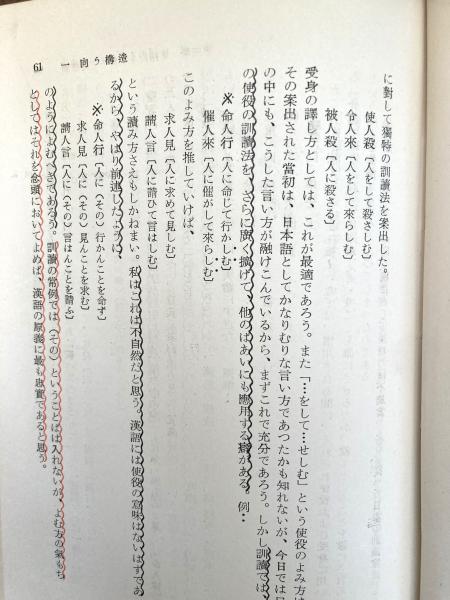 61 一 向う構造
に對して獨特の訓讀法を案出した。
使人殺〔人をして殺さしむ〕
令人來〔人をして來らしむ〕
被人殺〔人に殺さる〕
受身の譯し方としては、これが最適であろう。また「…をして…せしむ」という使役のよみ方は
その案出された當初は、日本語としてかなりむりな言い方であつたかも知れないが、今日では
の中にも、こうした言い方が融けこんでいるから、まずこれで充分であろう。しかし訓讀では、
の使役の訓讀法を、さらに廣く擴げて、他のばあいにも應用する癖がある。例
※命人行〔人に命じて行かしむ〕
催人來〔人に催がして來らしむ〕
このよみ方を推していけば、
求人見〔人に求めて見しむ〕
請人言〔人に請ひて言はしむ〕
という讀み方さえもしかねまい。私はこれは不自然だと思う。漢語には使役の意味はないはずであ
るから、やはり前述したように、
※命人行〔人に（その）行かんことを命ず〕
求人見〔人に（その）見んことを求む〕
請人言〔人に（その）言はんことを請ふ〕
のようによむべきであろう。訓讀の常例では（その）ということばは入れないが、よむ方の氣もち
としてはそれを念頭においてよめば、漢語の原義に最も忠實であると思う。